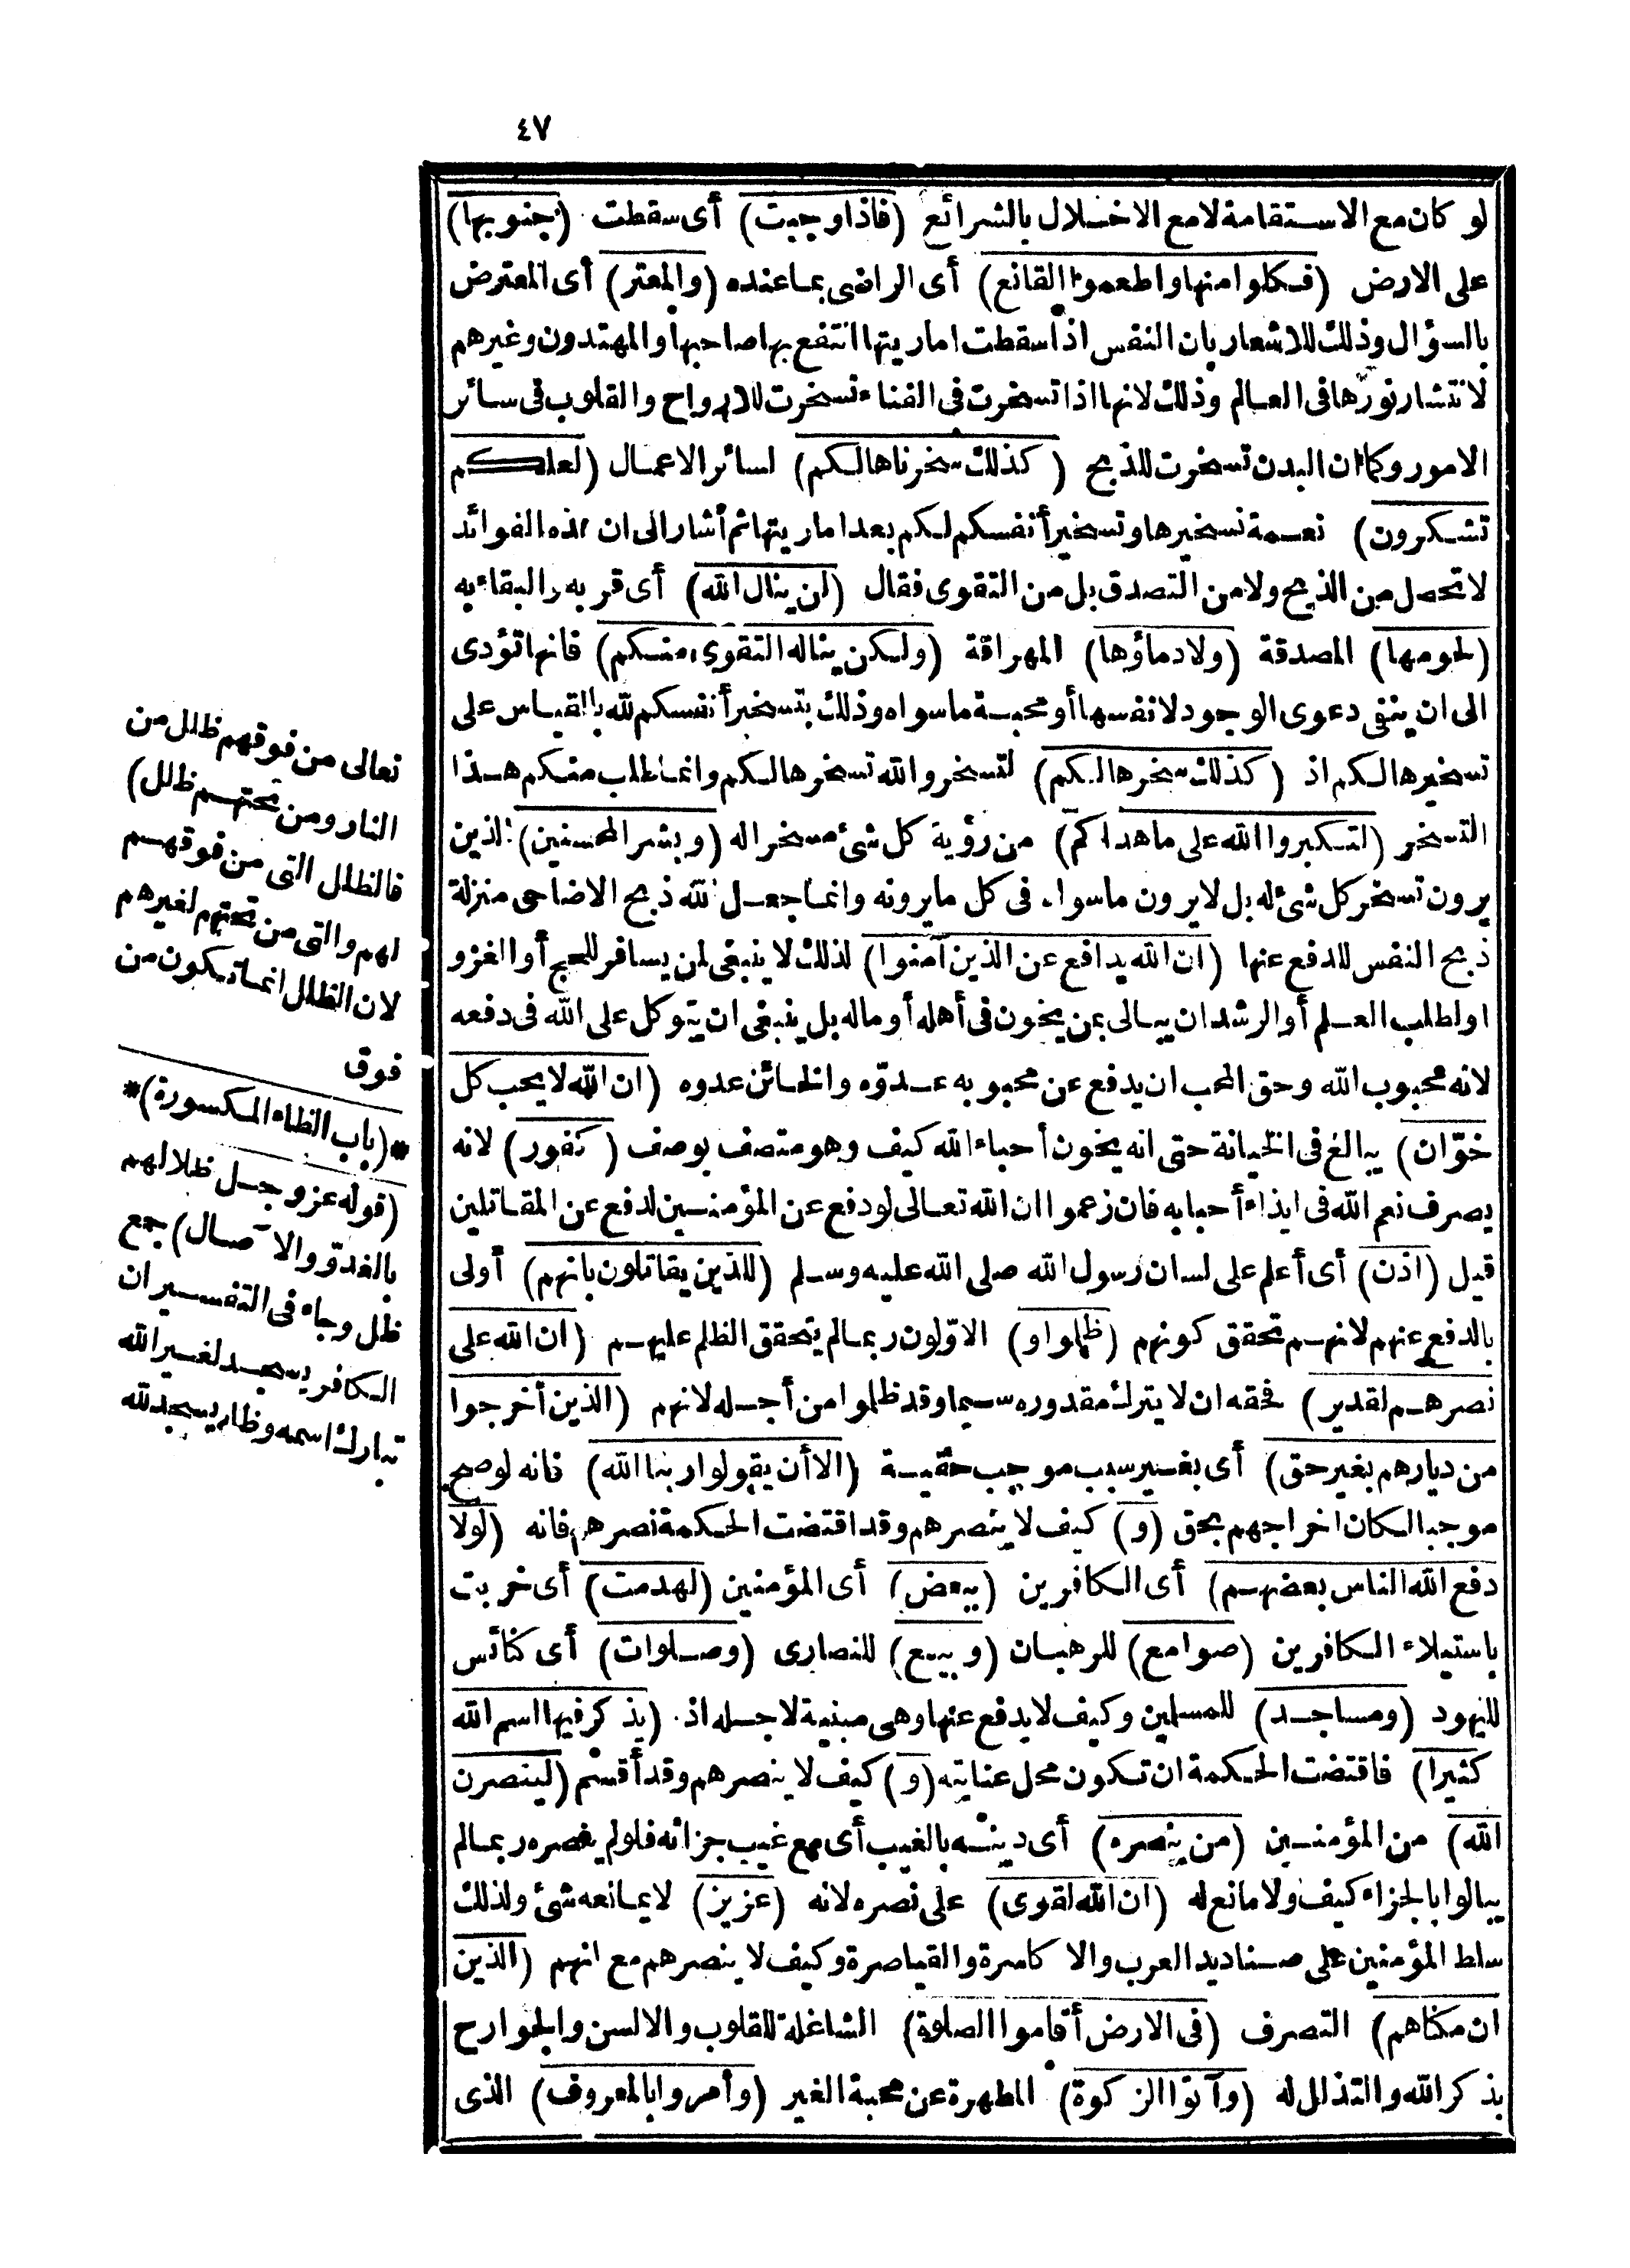 ٤٧
لو كان مع الاستقامة لا مع الاخلال بالشرائع (فاذا وجبت) أى سقطت (جنوبها)
على الارض (فكلوا منها واطعموا القانع) أى الراضى بما عنده (والمعتر) أى المعترض
بالسؤال وذلك للاشعار بان النفس اذا سقطت اماريتها انتفع بها صاحبها والمهتدون وغيرهم
لانتشار نورها فى العالم وذلك لانها اذا تسخرت فى الفناء تسخرت للارواح والقلوب فى سائر
الامور وكما ان البدن تسخرت للذبح (كذلك سخرناها لكم) لسائر الاعمال (لعلكم
تشكرون) نعمة تسخيرها وتسخير أنفسكم لكم بعد اماريتها ثم أشار الى ان هذه الفوائد
لا تحصل من الذبح ولا من التصدق بل من التقوى فقال (لن ينال الله) أى قربه والبقاء به
(لحومها) المصدقة (ولا دماؤها) المهراقة (ولكن يناله التقوى منكم) فانها تؤدى
الى ان ينفى دعوى الوجود لانفسها أو محبة ما سواه وذلك بتسخير أنفسكم لله بالقياس على
تسخيرها لكم اذ (كذلك سخرها لكم) لتسخر والله تسخرها لكم وانما طلب منكم هذا
التسخر (لتكبروا الله على ما هداكم) من رؤية كل شئ مسخرا له (وبشر المحسنين) الذين
يرون تسخر كل شئ له بل لا يرون ما سواه فى كل ما يرونه وانما جعل الله ذبح الاضاحى منزلة
ذبح النفس للدفع عنها (ان الله يدافع عن الذين آمنوا) لذلك لا ينبغى لمن يسافر للحج أو الغزو
او لطلب العلم أو الرشد ان يبالى بمن يخون فى أهله أو ماله بل ينبغى ان يتوكل على الله فى دفعه
لانه محبوب الله وحق المحب ان يدفع عن محبوبه عدوّه والخائن عدوه (ان الله لا يحب كل
خوّان) يبالغ فى الخيانة حتى انه يخون أحباء الله كيف وهو متصف بوصف (كفور) لانه
يصرف نعم الله فى ايذاء أحبابه فان زعموا ان الله تعالى لو دفع عن المؤمنين لدفع عن المقاتلين
قيل (اذن) أى أعلم على لسان رسول الله صلى الله عليه وسلم (للذين يقاتلون بانهم) أولى
بالدفع عنهم لانهم تحقق كونهم (ظلموا و) الاوّلون ربما لم يتحقق الظلم عليهم (ان الله على
نصرهم لقدير) فحقه ان لا يترك مقدوره سيما وقد ظلموا من أجله لانهم (الذين أخرجوا
من ديارهم بغير حق) أى بغير سبب موجب حقية (الا أن يقولوا ربنا الله) فانه لو صح
موجبا لكان اخراجهم بحق (و) كيف لا ينصرهم وقد اقتضت الحكمة نصرهم فانه (لولا
دفع الله الناس بعضهم) أى الكافرين (ببعض) أى المؤمنين (لهدمت) أى خربت
باستيلاء الكافرين (صوامع) للرهبان (وبيع) للنصارى (وصلوات) أى كنائس
لليهود (ومساجد) للمسلمين وكيف لا يدفع عنها وهى مبنية لاجله اذ (يذكر فيها اسم الله
كثيرا) فاقتضت الحكمة ان تكون محل عنايته (و) كيف لا ينصرهم وقد أقسم (لينصرن
الله) من المؤمنين (من ينصره) أى دينه بالغيب أى مع غيب جزائه فلو لم ينصره ربما لم
يبالوا بالجزاء كيف ولا مانع له (ان الله لقوى) على نصره لانه (عزيز) لا يمانعه شئ ولذلك
سلط المؤمنين على صناديد العرب والا كاسرة والقياصرة وكيف لا ينصرهم مع انهم (الذين
ان مكناهم) التصرف (فى الارض أقاموا الصلوة) الشاغلة للقلوب والالسن والجوارح
بذكر الله والتذلل له (وآتوا الزكوة) المطهرة عن محبة الغير (وأمروا بالمعروف) الذى
تعالى من فوقهم ظلل من
النار ومن تحتهم ظلل)
فالظلل التى من فوقهم
لهم والتى من تحتهم لغيرهم
لان الظلل انما تكون من
فوق
*(باب الظاء المكسورة)*
(قوله عز وجل ظلالهم
بالغدوّ والآصال) جمع
ظل وجاء فى التفسير ان
الكافر يسجد لغير الله
تبارك اسمه وظله يسجد لله